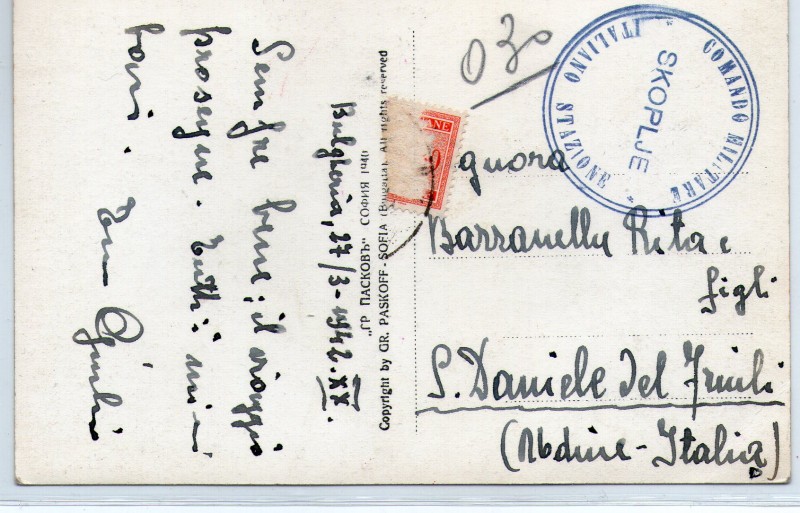 Bulgheria, 27/3-1942.XX.
Sempre bene; il viaggio
prosegue. Tutti i miei
baci.
"ГР ПАСКОВЪ" СОФИЯ 1940
Copyright by GR. PASKOFF - SOFIA (Bulgaria). All rights reserved
030
COMANDO MILITARE
ITALIANO STAZIONE
* SKOPLJE *
ANE
gnora
Barranella Rita e
figli
S. Daniele del Friuli
(Udine-Italia)